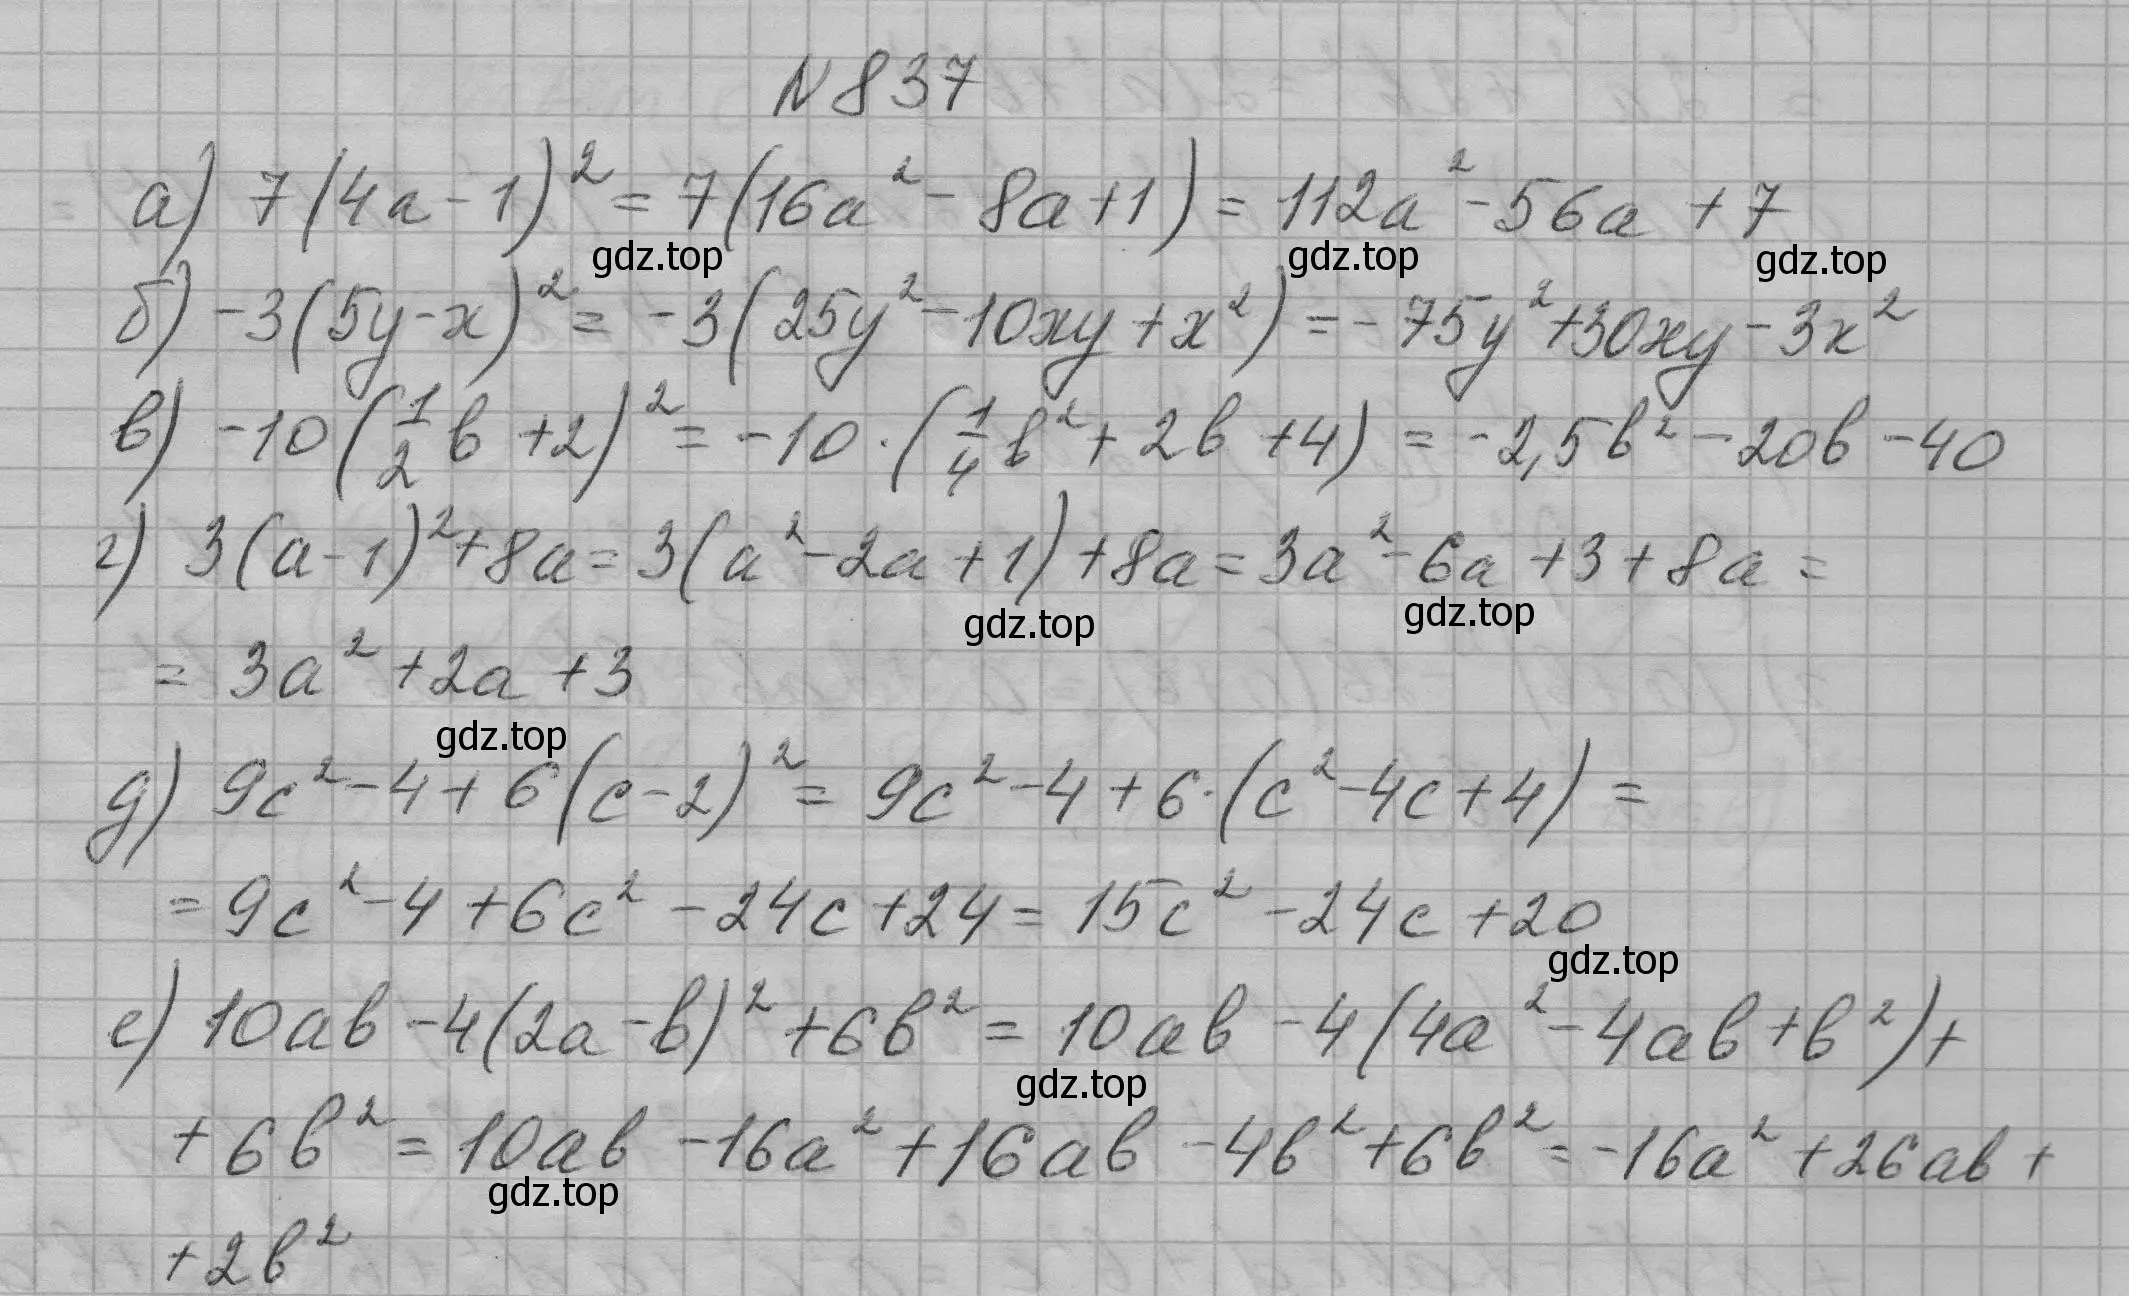 N 837
а) 7(4a-1)² = 7(16a² - 8a+1) = 112a² - 56a + 7
gdz.top gdz.top gdz.top
б) -3(5y-x)² = -3(25y² - 10xy + x²) = -75y² + 30xy - 3x²
в) -10(1/2 b + 2)² = -10·(1/4 b² + 2b + 4) = -2,5b² - 20b - 40
г) 3(a-1)² + 8a = 3(a² - 2a + 1) + 8a = 3a² - 6a + 3 + 8a =
gdz.top gdz.top
= 3a² + 2a + 3
gdz.top
д) 9c² - 4 + 6(c-2)² = 9c² - 4 + 6·(c² - 4c + 4) =
= 9c² - 4 + 6c² - 24c + 24 = 15c² - 24c + 20
gdz.top
е) 10ab - 4(2a-b)² + 6b² = 10ab - 4(4a² - 4ab + b²) +
gdz.top
+ 6b² = 10ab - 16a² + 16ab - 4b² + 6b² = -16a² + 26ab +
gdz.top
+ 2b²